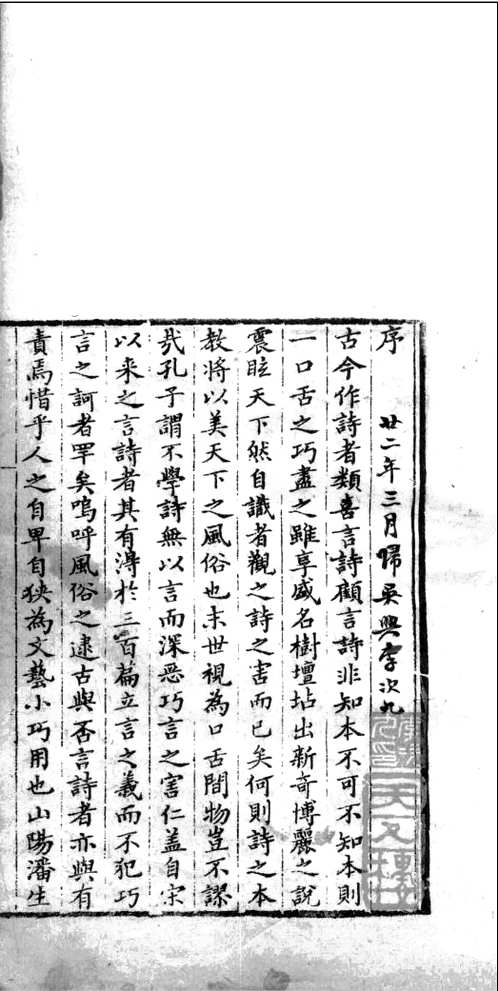 序 廿二年三月歸吳興李次九
古今作詩者類喜言詩顧言詩非知本不可不知本則
一口舌之巧盡之雖享盛名樹壇坫出新奇博麗之說
震眩天下然自識者觀之詩之害而已矣何則詩之本
教將以美天下之風俗也末世視為口舌間物豈不謬
哉孔子謂不學詩無以言而深惡巧言之害仁蓋自宋
以来之言詩者其有淂於三百篇立言之義而不犯巧
言之訶者罕矣嗚呼風俗之逮古與否言詩者亦與有
責焉惜乎人之自畀自狹為文藝小巧用也山陽潘生